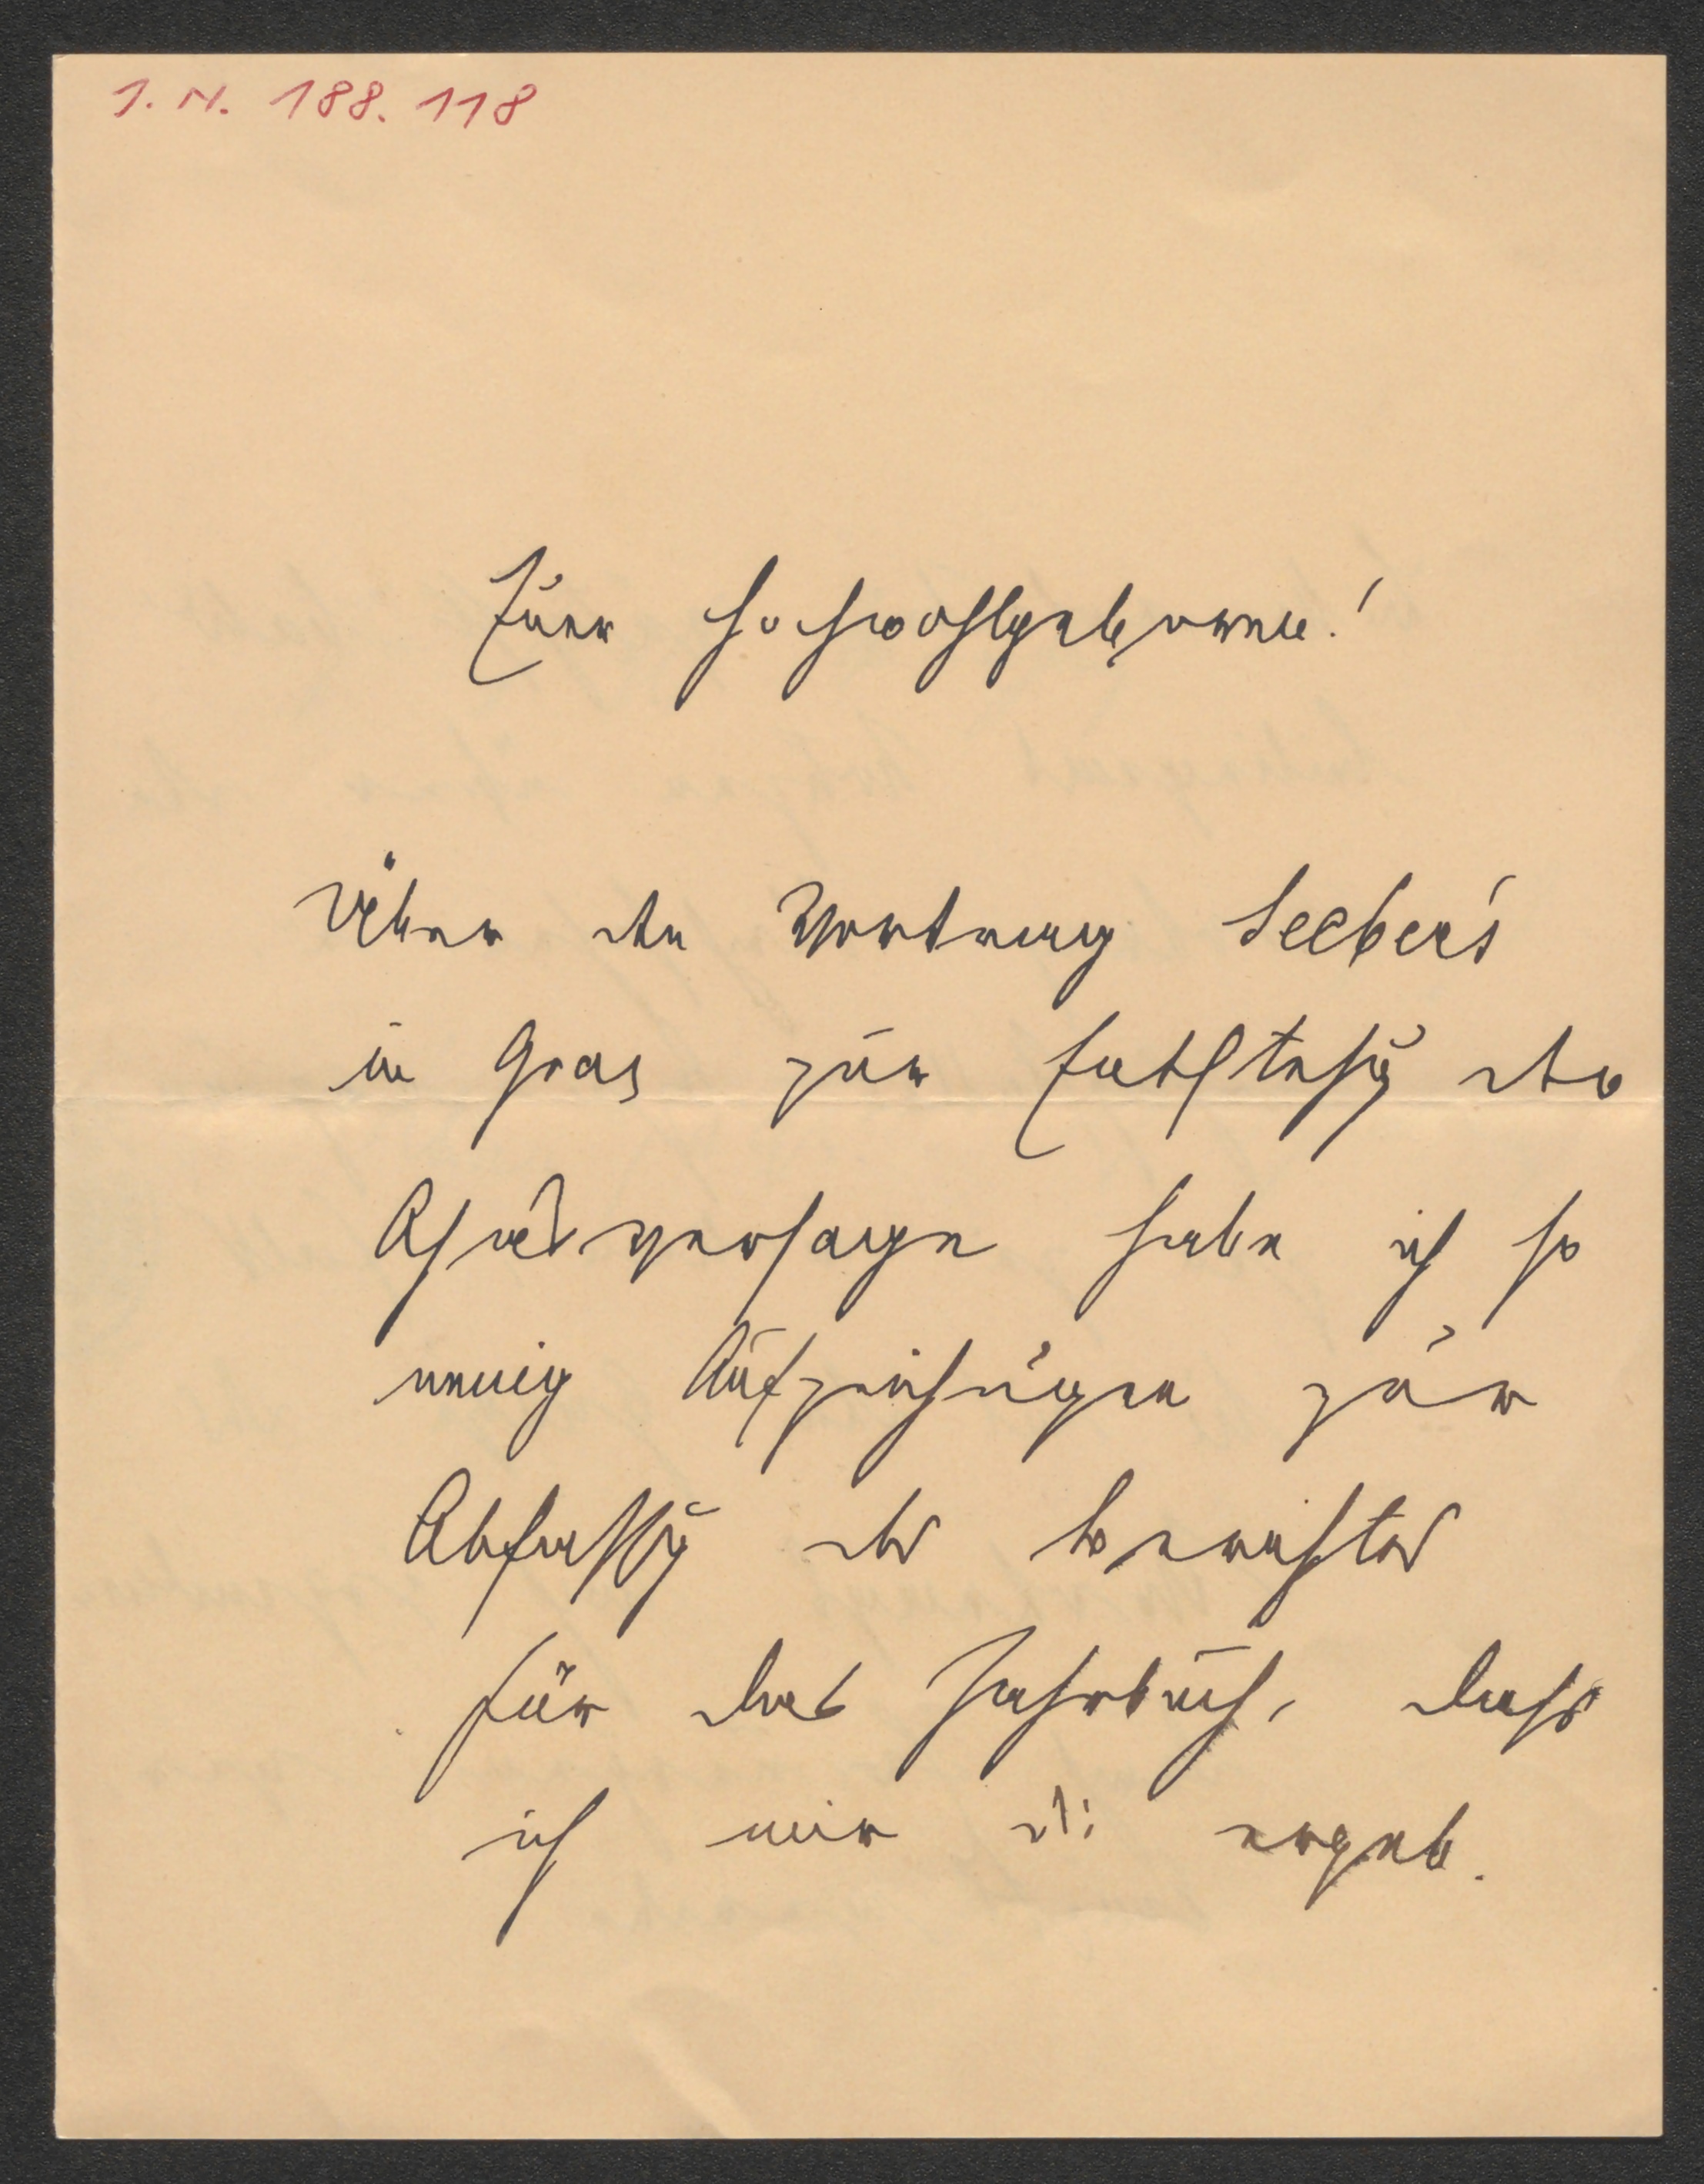 I. N. 188.118
Euer Hochwohlgeboren!
Über den Vortrag Seeber's
in Graz zur Entstehg der
Ahnfrau habe ich so
wenig Aufzeichungen zur
Abfassg des Berichtes
für das Jahrbuch, dass
ich mir die ergeb.